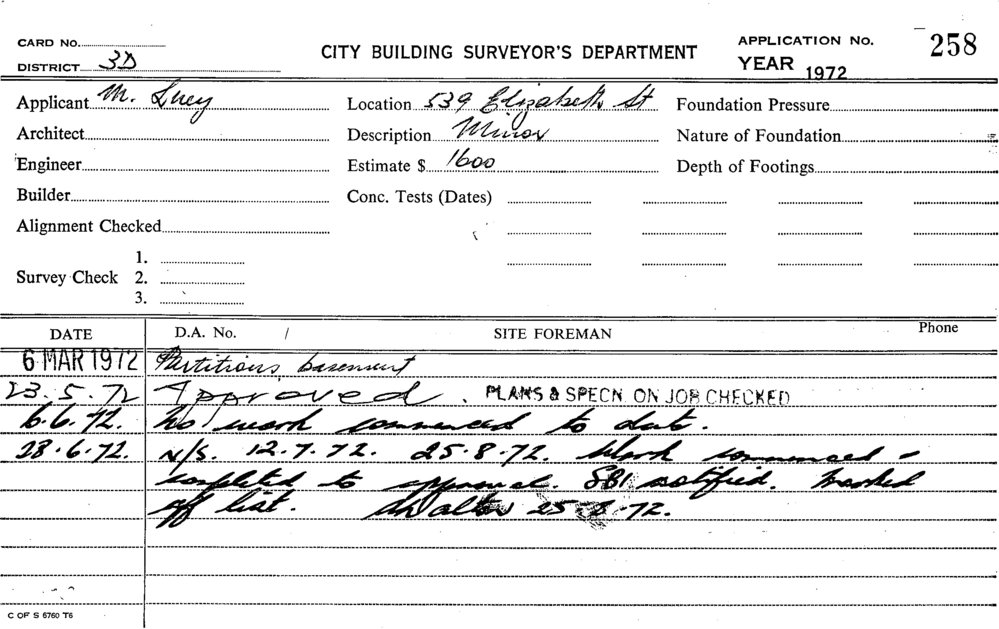 CARD No.
DISTRICT 3D
CITY BUILDING SURVEYOR'S DEPARTMENT
APPLICATION No. 258
YEAR 1972
Applicant M. Luey Location 539 Elizabeth St Foundation Pressure
Architect Description Minor Nature of Foundation
Engineer Estimate $ 1600 Depth of Footings
Builder Conc. Tests (Dates)
Alignment Checked
1.
Survey Check 2.
3.
DATE D.A. No. / SITE FOREMAN Phone
6 MAR 1972 Partitions, basement
23.5.72 Approved. PLANS & SPECN ON JOB CHECKED
6.6.72. No work commenced to date.
28.6.72. N/S. 12.7.72. 25.8.72. Work commenced -
completed to approval. SBI notified. Marked
off list. 25 72.
C OF S 6760 T6